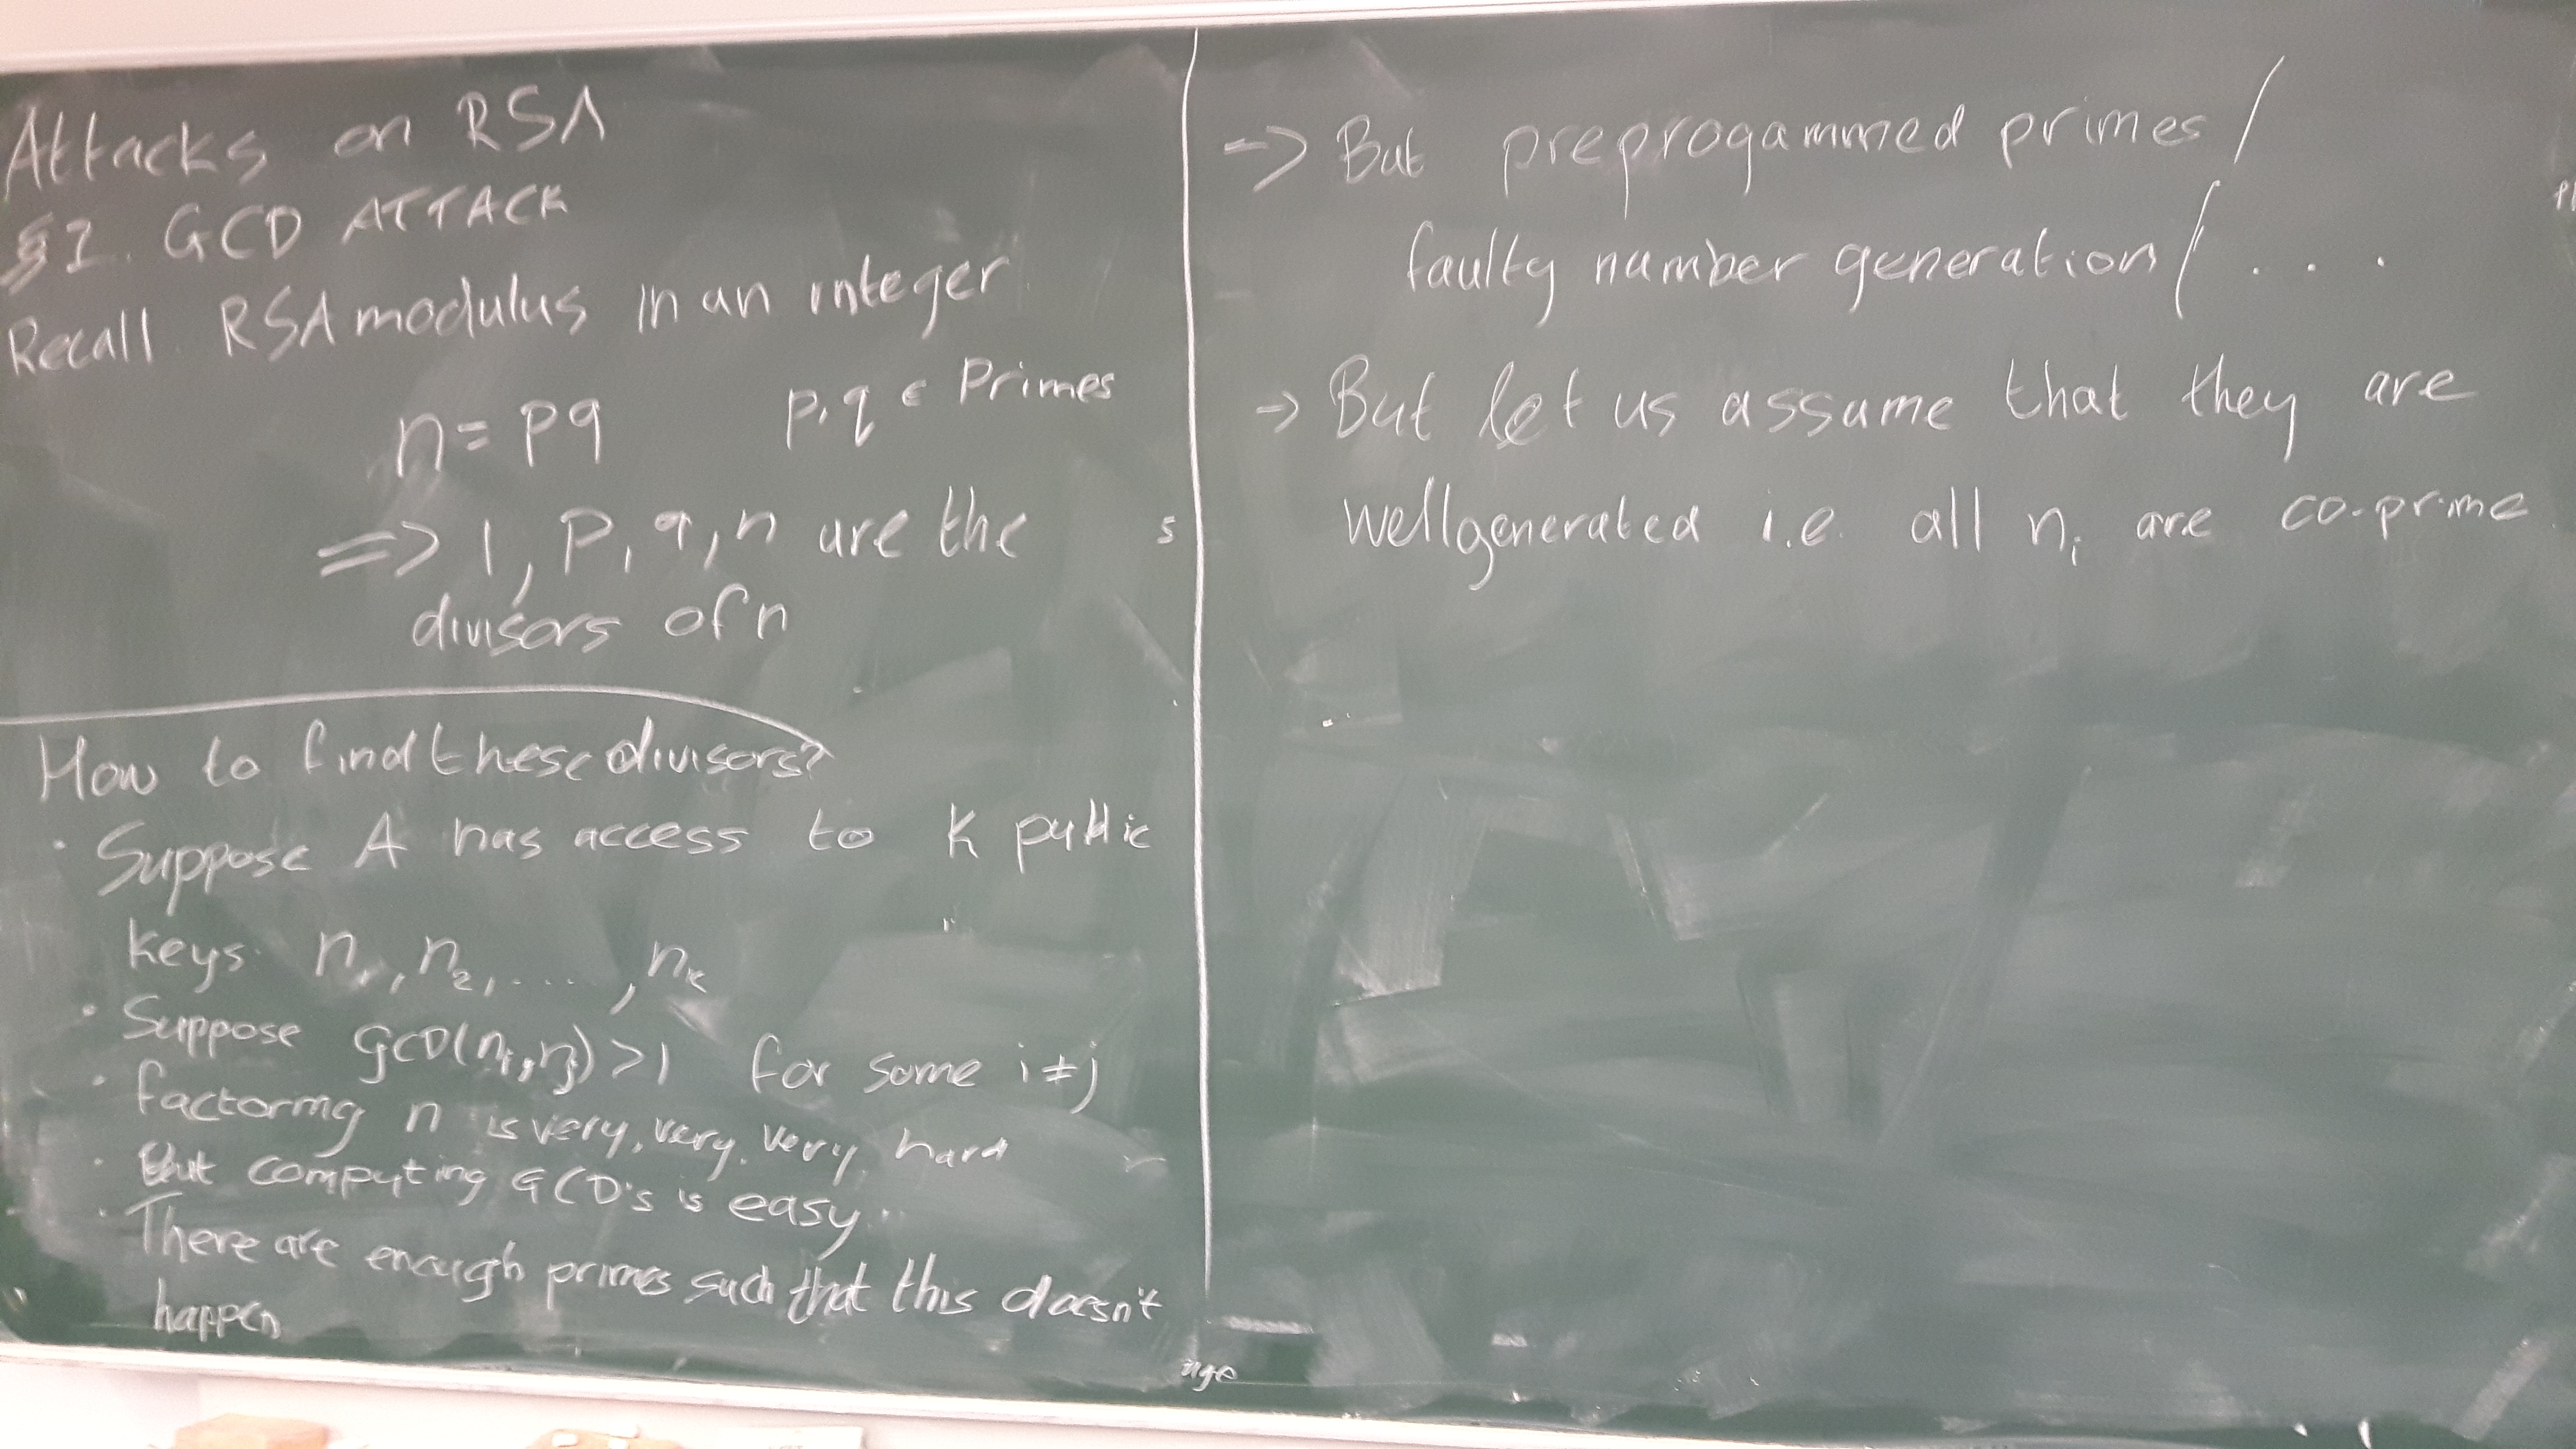 Attacks on RSA
§1. GCD ATTACK
Recall RSA modulus in an integer
n = pq p, q ∈ Primes
=> 1, p, q, n are the
divisors of n
How to find these divisors?
· Suppose A has access to K public
keys n₁, n₂, ...., nₖ
· Suppose GCD(nᵢ, nⱼ) > 1 for some i ≠ j
· factoring n is very, very, very hard
· But computing GCD's is easy
· There are enough primes such that this doesn't
happen
-> But preprogammed primes /
faulty number generation / ...
-> But let us assume that they are
wellgenerated i.e. all nᵢ are co-prime
s
age